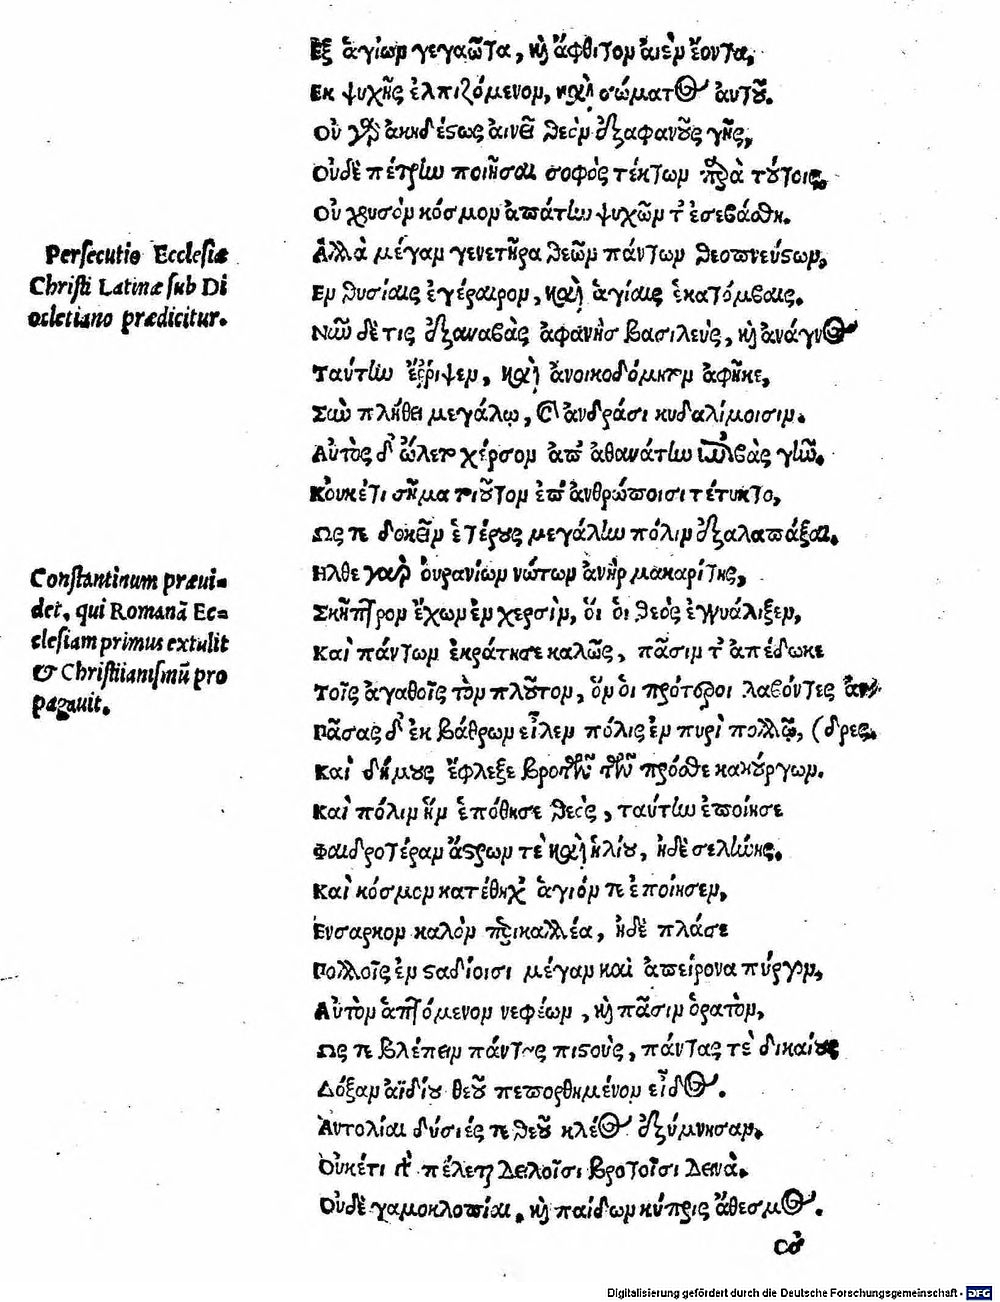 Ἐξ ἁγίων γεγαῶτα, καὶ ἄφθιτον αἰὲν ἔοντα,
Ἐκ ψυχῆς ἐλπιζόμενον, καὶ σώματος αὐτοῦ.
Οὐ γὰρ ἀκηδέστως αἰνεῖ θεὸν ἐξ ἀφανοῦς γῆς,
Οὐδὲ πέτρην ποιῆσαι σοφὸς τέκτων παρὰ τούτοις,
Οὐ χρυσὸν κόσμον ἀπάτην ψυχῶν τ' ἐσεβάσθη.
Ἀλλὰ μέγαν γενετῆρα θεῶν πάντων θεοπνεύστων,
Ἐν θυσίαις ἐγέραιρον, καὶ ἁγίαις ἑκατόμβαις.
Νῦν δὲ τις ἐξαναβὰς ἀφανὴς βασιλεὺς, καὶ ἄναγνος
Ταύτην ἔῤῥιψεν, καὶ ἀνοικοδόμητον ἀφῆκε,
Σὺν πλήθει μεγάλῳ, καὶ ἀνδράσι κυδαλίμοισιν.
Persecutio Ecclesiæ
Christi Latinæ sub Di
ocletiano prædicitur.
Αὐτὸς δ' ὤλετο χέρσον ἀπ' ἀθανάτην ἐπιβὰς γῆν.
Κοὐκέτι σῆμα τοιοῦτον ἐπ' ἀνθρώποισι τέτυκτο,
Ὥς τε δοκεῖν ἑτέρους μεγάλην πόλιν ἐξαλαπάξαι.
Ἦλθε γὰρ οὐρανίων νώτων ἀνὴρ μακαρίτης,
Σκῆπτρον ἔχων ἐν χερσὶν, ὅ οἱ θεὸς ἐγγυάλιξεν,
Καὶ πάντων ἐκράτησε καλῶς, πᾶσιν τ' ἀπέδωκε
Τοῖς ἀγαθοῖς τὸν πλοῦτον, ὃν οἱ πρότεροι λαβόντες ἄν-
Πᾶσας δ' ἐκ βάθρων εἷλεν πόλις ἐν πυρὶ πολλῷ, (δρες.
Καὶ δήμους ἔφλεξε βροτῶν τῶν πρόσθε κακούργων.
Constantinum præui-
det, qui Romanã Ec-
clesiam primus extulit
& Christiianismũ pro
pagauit.
Καὶ πόλιν ἣν ἐπόθησε θεὸς, ταύτην ἐποίησε
Φαιδροτέραν ἄστρων τε καὶ ἡλίου, ἠδὲ σελήνης.
Καὶ κόσμον κατέθηχ' ἅγιόν τε ἐποίησεν,
Ἔνσαρκον καλὸν περικαλλέα, ἠδὲ πλάσε
Πολλοῖς ἐν σταδίοισι μέγαν καὶ ἀπείρονα πύργον,
Αὐτὸν ἁπτόμενον νεφέων, καὶ πᾶσιν ὁρατὸν,
Ὥς τε βλέπειν πάντας πιστοὺς, πάντας τε δικαίους
Δόξαν ἀϊδίου θεοῦ πεποθημένον εἶδος.
Ἀντολίαι δύσιές τε θεοῦ κλέος ἐξύμνησαν.
Οὐκέτι γὰρ πέλεται δειλοῖσι βροτοῖσι δεινὰ.
Οὐδὲ γαμοκλοπίαι, καὶ παίδων κύπρις ἄθεσμος.
Digitalisierung gefördert durch die Deutsche Forschungsgemeinschaft - DFG